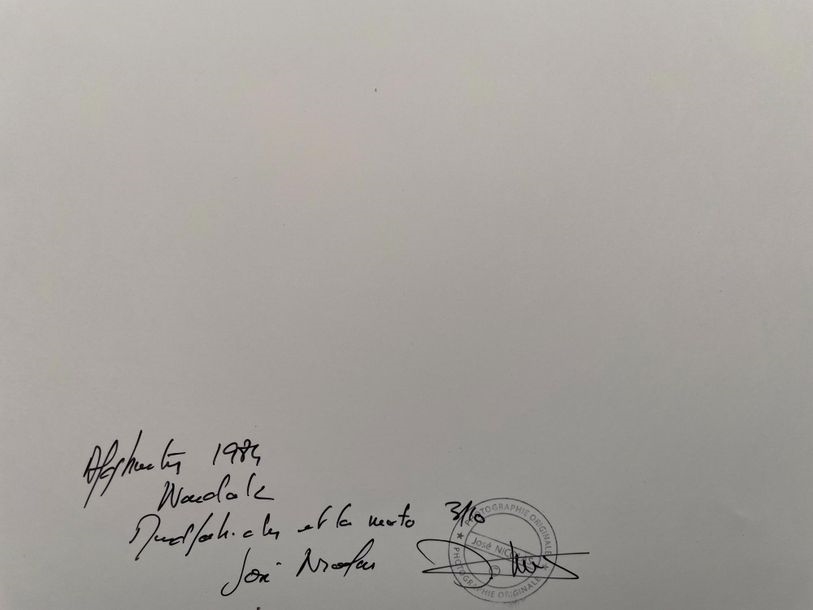 Afghanistan 1984
Wardak
et la moto 3/10
José Nicolas
PHOTOGRAPHIE ORIGINALE ★ PHOTOGRAPHIE ORIGINALE ★
José NICOLAS
©